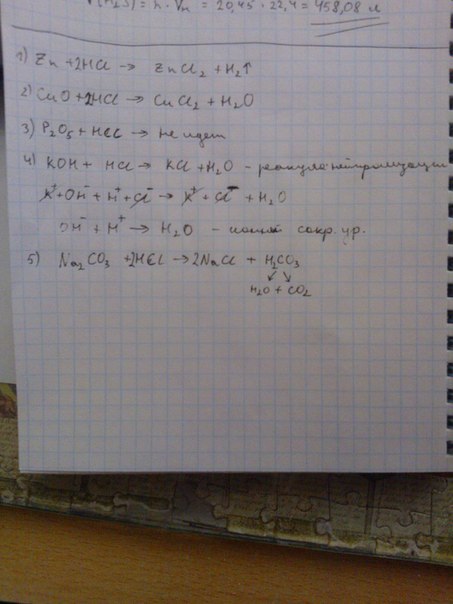 V(H₂S) = n · Vₘ = 20,45 · 22,4 = 458,08 л
1) Zn + 2HCl → ZnCl₂ + H₂↑
2) CuO + 2HCl → CuCl₂ + H₂O
3) P₂O₅ + HCl → не идет
4) KOH + HCl → KCl + H₂O - реакция нейтрализации
K⁺ + OH⁻ + H⁺ + Cl⁻ → K⁺ + Cl⁻ + H₂O
OH⁻ + H⁺ → H₂O - сокр. ур.
5) Na₂CO₃ + 2HCl → 2NaCl + H₂CO₃
↙ ↘
H₂O + CO₂